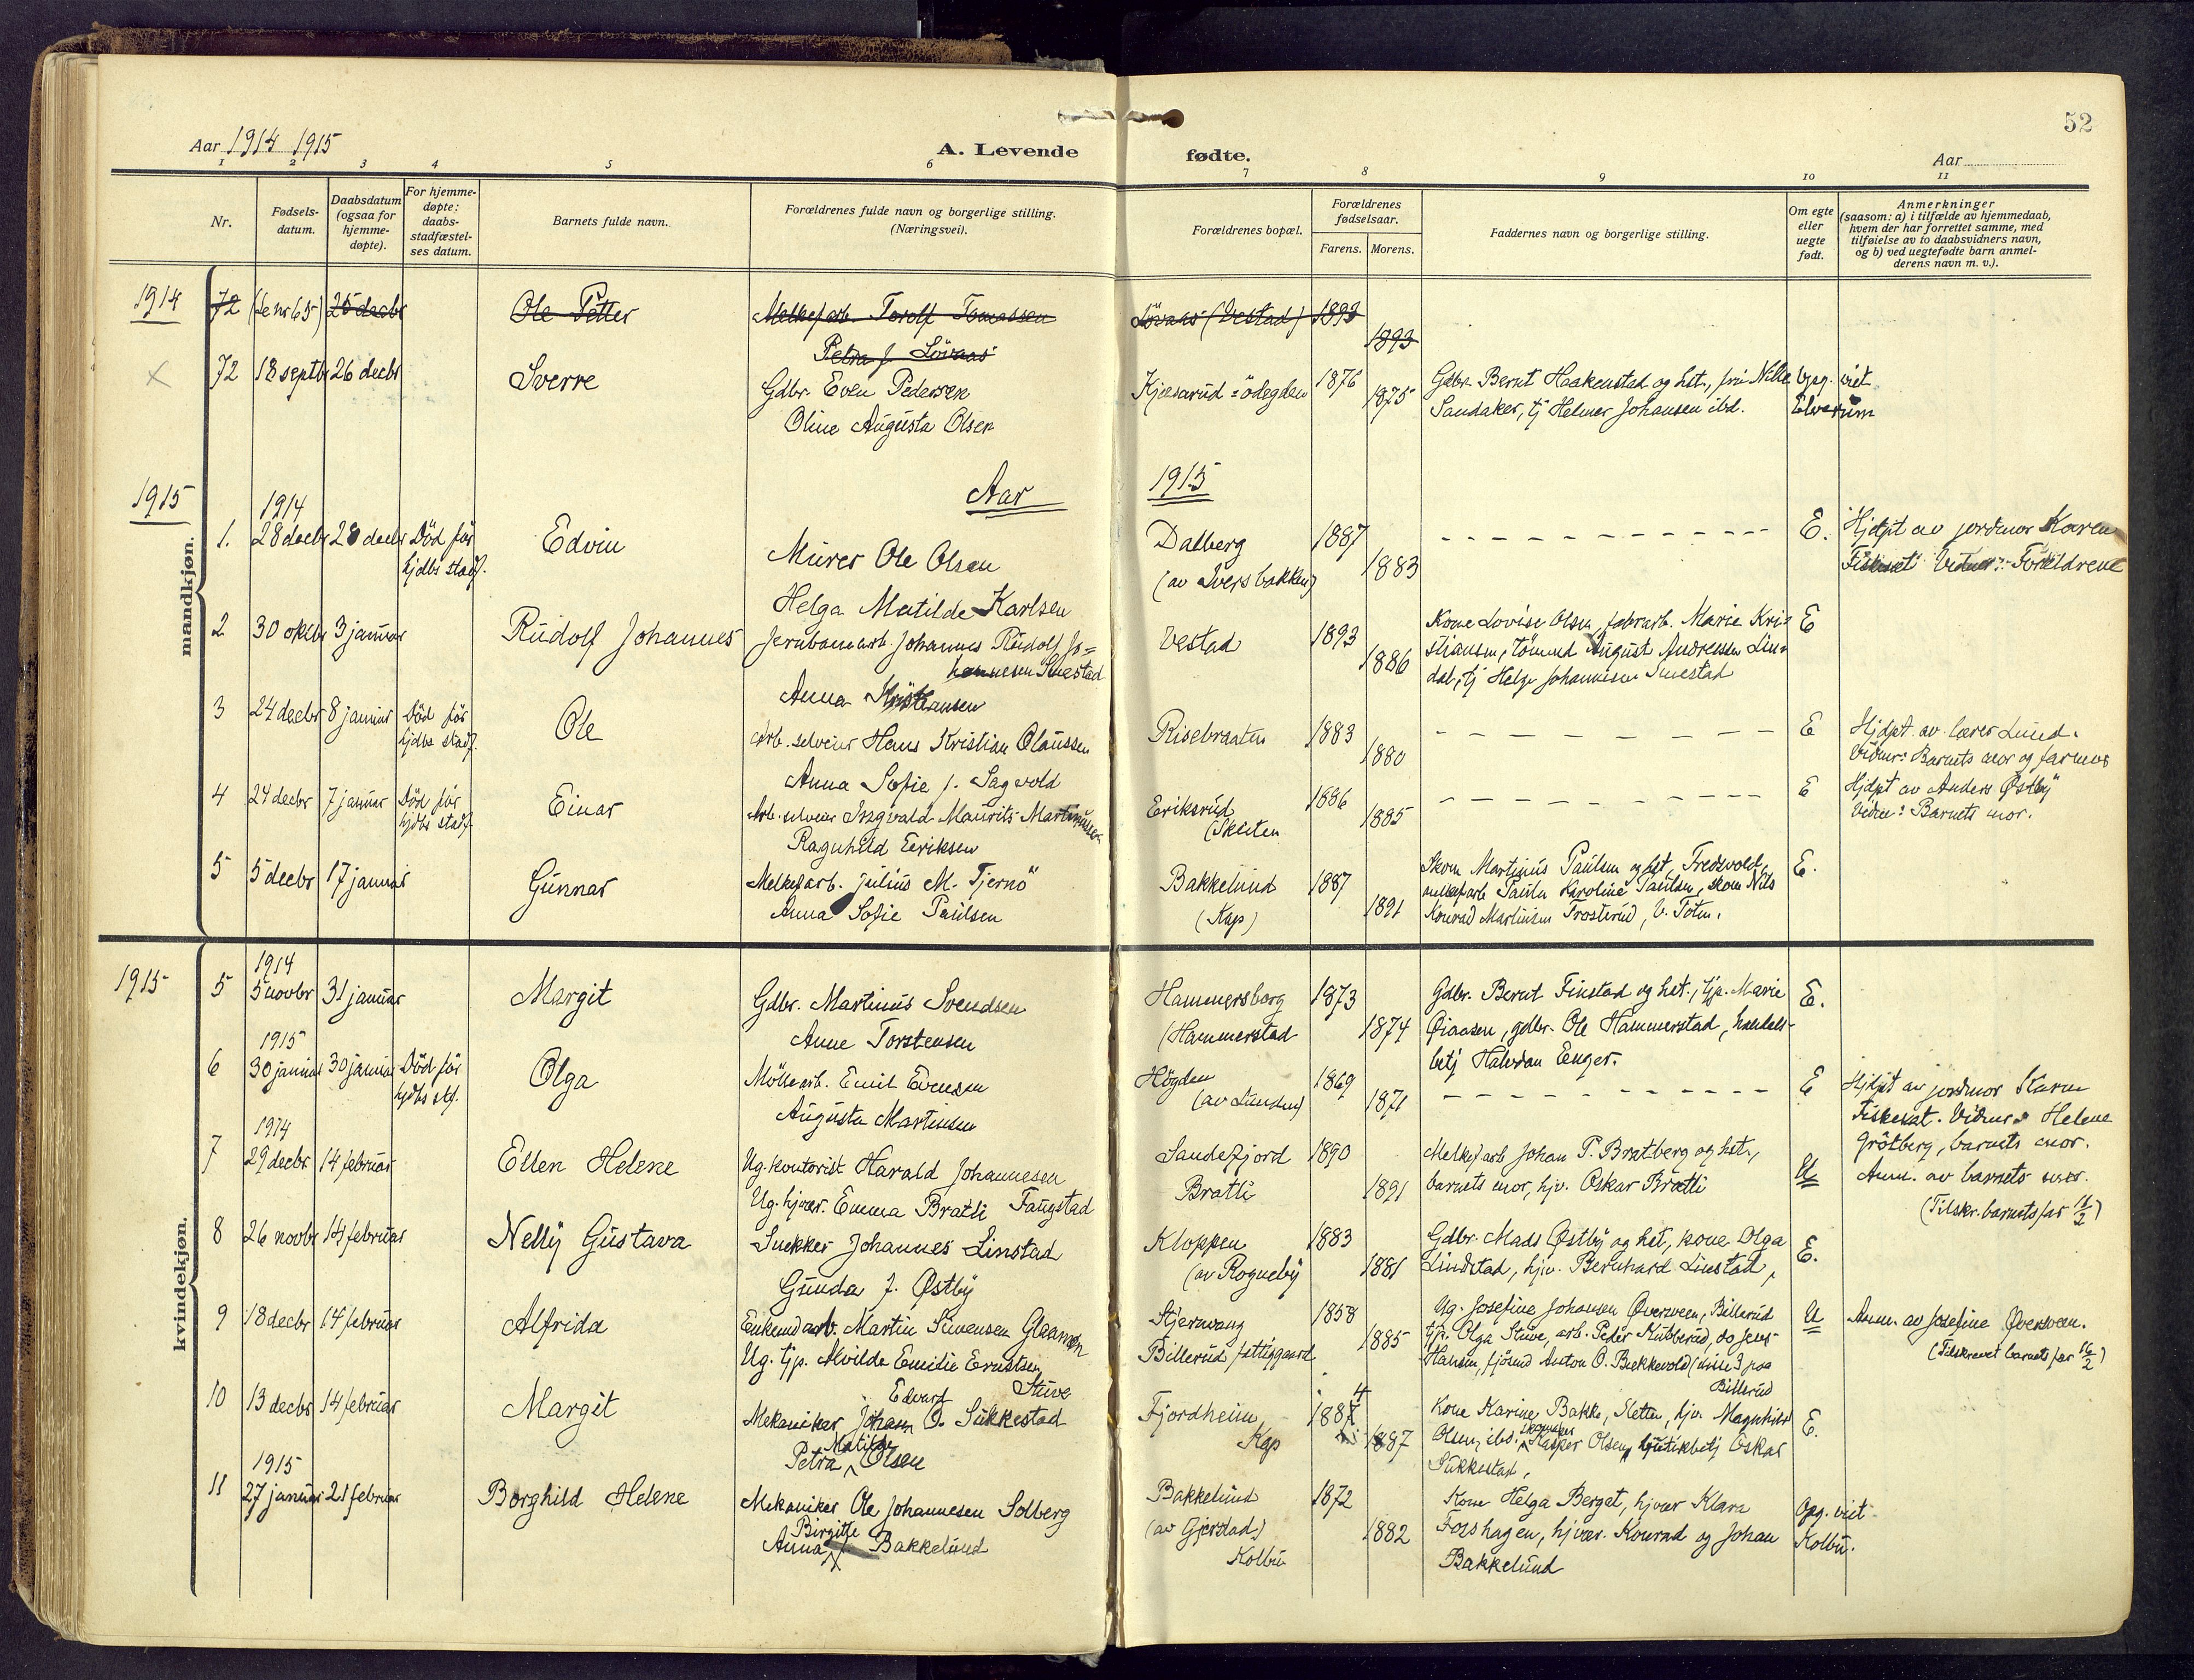 52
Aar 1914 1915
A. Levende fødte.
Aar
1 2 3 4 5 6 7 8 9 10 11
Nr.
Fødsels-
datum.
Daabsdatum
(ogsaa for
hjemme-
døpte).
For hjemme-
døpte:
daabs-
stadfæstel-
ses datum.
Barnets fulde navn.
Forældrenes fulde navn og borgerlige stilling.
(Næringsvei).
Forældrenes bopæl.
Forældrenes
fødselsaar.
Farens. Morens.
Faddernes navn og borgerlige stilling.
Om egte
eller
uegte
født.
Anmerkninger
(saasom: a) i tilfælde av hjemmedaab,
hvem der har forrettet samme, med
tilføielse av to daabsvidners navn,
og b) ved uegtefødte barn anmel-
derens navn m. v.).
mandkjøn.
1914
72 (se nr 65) 25 decbr Ole Petter Melkefarb. Torolf Tomassen Lövaas (Vestad) 1893
Petra J. Lövaas 1893
72 18 septbr 26 decbr Sverre Gdbr. Even Pedersen Kjæsarud-ödegden 1876 1875
Oline Augusta Olsen
Gdbr. Bernt Haakenstad og hst., frö. Nille
Sandaker, tj Helmer Johansen ibd.
Opg. viet
Elverum
1915
Aar 1915
1914
1. 28 decbr 28 decbr Död för
hjdbs stadf.
Edvin
Murer Ole Olsen
Helga Matilde Karlsen
Dalberg
(av Iversbakken)
1887
1883
E.
Hjdpt av jordmor Karen
Fiskeset Vidner: Foreldrene
2 30 oktbr 3 januar Rudolf Johannes
Jernbanearb. Johannes Rudolf Jo=
hannesen Smestad
Anna Kristiansen
Vestad 1893
1886
Kone Lovise Olsen, fabrarb. Marie Kri-
stiansen, tömmd August Andreassen Lin-
dal, tj Helge Johannesen Smestad
E
3 24 decbr 8 januar Död för
hjdbs stadf.
Ole
Arb. selveier Hans Kristian Olaussen
Anna Sofie J. Sagvold
Risebraaten 1883
1880
E
Hjdpt. av lærer Lund.
Vidner: Barnets mor og farmor
4 24 decbr 7 januar Död för
hjdbs stadf.
Einar
Arb. selveier Ingvald Maurits Martinussen
Ragnhild Eeriksen
Eriksrud
(Sketen
1886
1885
E
Hjdpt av Anders Østby
Vidne: Barnets mor.
5 5 decbr 17 januar Gunnar
Melkefarb. Julius M. Tjernö
Anna Sofie Paulsen
Bakkelund
(Kap)
1887
1891
Skom Martinus Paulsen og hst. Fredsvold,
melkefarb Paula Karoline Paulsen, skom Nils
Konrad Martinsen Trosterud, V. Toten.
E.
kvindekjøn.
1915
1914
5 5 novbr 31 januar Margit
Gdbr. Martinus Svendsen
Anne Torstensen
Hammersborg
(Hammerstad
1873
1874
Gdbr. Bernt Finstad og hst., tjp. Marie
Øiaasen, gdbr. Ole Hammerstad, handels-
betj Halvdan Enger.
E.
1915
6 30 januar 30 januar Död för
hjdbs stf.
Olga
Möllearb. Emil Evensen
Augusta Martinsen
Högden
(av Lunden)
1869
1871
E
Hjdpt av jordmor Karen
Fiskeset. Vidner: Helene
Grötberg, barnets mor.
1914
7 29 decbr 14 februar Ellen Helene
Ug. kontorist Harald Johannesen
Ug. hjvær. Emma Bratli Faugstad
Sandefjord
Bratli
1890
1891
Melkefarb Johan P. Bratberg og hst.,
barnets mor, hjv. Oskar Bratli
U
Anm. av barnets mor.
(Tilskr. barnets far 16/2)
8 26 novbr 14 februar Nelly Gustava
Snekker Johannes Linstad
Gunda J. Østby
Kloppen
(av Rogneby
1883
1881
Gdbr. Mads Østby og hst, kone Olga
Lindstad, hjv. Bernhard Linstad,
E.
9 18 decbr 14 februar Alfrida
Enkemd arb. Martin Simensen Glaamen
Ug. tjp. Alvilde Emilie Ernstsen
Stuve
Stjernvang
Billerud fattiggaard
1858
1885
Ug. Josefine Johansen Øversveen, Billerud
tjp. Olga Stuve, arb. Peder Kutsberud, do Jens
Hansen, fjösmd Anton O. Bækkevold (disse 3 paa
Billerud
U
Anm. av Josefine Øversveen.
(Tilskrevet barnets far 16/2)
10 13 decbr 14 februar Margit
Edvard
Mekaniker Johan O. Sukkestad
Matilde
Petra Olsen
Fjordheim
Kap
1884
1887
Kone Karine Bakke, Sletten, hjv. Magnhild
Olsen, ibd. Kasper Olsen, butikbetj Oskar
Sukkestad.
E.
1915
11 27 januar 21 februar Borghild Helene
Mekaniker Ole Johannesen Solberg
Birgitte
Anna Bakkelund
Bakkelund
(av Gjerstad)
Kolbu
1872
1882
Kone Helga Berget, hjvær Klara
Forshagen, hjvær. Konrad og Johan
Bakkelund
Opg. viet
Kolbu.